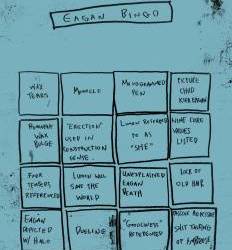 EAGAN BINGO
WAX
TEARS
MONOGRAMMED
PEN
PICTURE
CHILD
KIER EAGAN
WAX
BULGE
"ERECTION"
USED IN
CONSTRUCTION
SENSE
LUMON REFERRED
TO AS
"SHE"
NINE CORE
VALUES
LISTED
FOUR
TEMPERS
REFERENCED
LUMON WILL
SAVE THE
WORLD
UNEXPLAINED
EAGAN
DEATH
LOCK OF
OLD HAIR
EAGAN
DEPICTED
W/ HALO
DUELING
REFERENCED